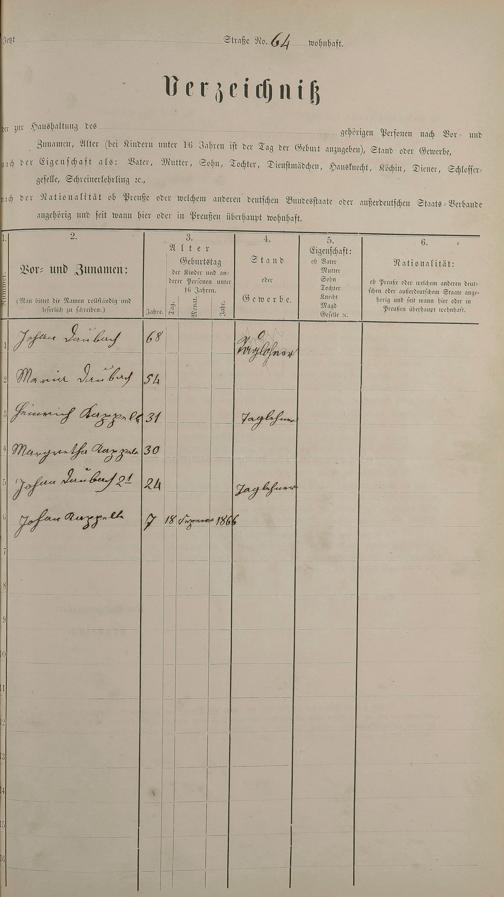 Jetzt Straße No. 64 wohnhaft.
Verzeichniß
der zur Haushaltung des gehörigen Personen nach Vor- und
Zunamen, Alter (bei Kindern unter 16 Jahren ist der Tag der Geburt anzugeben), Stand oder Gewerbe,
nach der Eigenschaft als: Vater, Mutter, Sohn, Tochter, Dienstmädchen, Hausknecht, Köchin, Diener, Schlosser-
geselle, Schreinerlehrling ꝛc.,
nach der Nationalität ob Preuße oder welchem anderen deutschen Bundesstaate oder außerdeutschen Staats-Verbande
angehörig und seit wann hier oder in Preußen überhaupt wohnhaft.
1. 2. 3. 4. 5. 6.
Vor- und Zunamen:
(Man bittet die Namen vollständig und
leserlich zu schreiben.)
Alter
Geburtstag
der Kinder und an-
derer Personen unter
16 Jahren.
Jahre. Tag. Monat. Jahr.
Stand
oder
Gewerbe.
Eigenschaft:
ob Vater
Mutter
Sohn
Tochter
Knecht
Magd
Geselle ꝛc.
Nationalität:
ob Preuße oder welchem anderen deut-
schen oder außerdeutschem Staate ange-
hörig und seit wann hier oder in
Preußen überhaupt wohnhaft.
1 Johan Daubach 68 Taglohner
2 Maria Daubach 54
3 Heinrich Kappels 31 Taglehner
4 Margretha Kappels 30
5 Johan Daubach 2t 24 Taglehner
6 Johan Kappels 7 18 1866
7
8
9
10
11
12
13
14
15
16